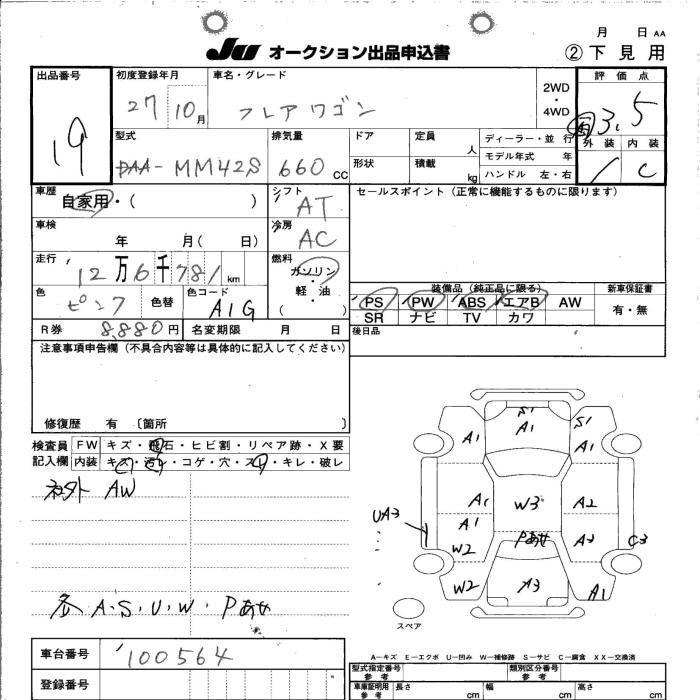 月 日 AA
JU オークション出品申込書 ②下見用
出品番号 初度登録年月 車名・グレード 2WD・4WD 評価点
19 27 10月 フレアワゴン 3.5
型式 排気量 ドア 定員 人 ディーラー・並行 外装 内装
DAA-MM42S 660cc 形状 積載 kg モデル年式 年 1 C
ハンドル 左・右
車歴 自家用・( ) シフト AT セールスポイント(正常に機能するものに限ります)
車検 年 月( 日) 冷房 AC
走行 12万6千781km 燃料 ガソリン・軽油 ( )
装備品(純正品に限る) 新車保証書
色 ピンク 色替 色コード A1G PS PW ABS エアB AW 有・無
SR ナビ TV カワ
R券 8,880円 名変期限 月 日 後日品
注意事項申告欄(不具合内容等は具体的に記入してください)
修復歴 有 〔箇所 〕
検査員 FW キズ・飛石・ヒビ割・リペア跡・X要
記入欄 内装 キズ・汚れ・コゲ・穴・スレ・キレ・破レ
社外 AW
各 A・S・U・W・Pあせ
S1
A1
A1
S1
A1
A1
W3
A2
UA3
A1
W2
Pあせ
A3
C3
W2
A3
A1
スペア
A-キズ E-エクボ U-凹み W-補修跡 S-サビ C-腐食 XX-交換済
車台番号 100564
型式指定番号 参考 類別区分番号 参考
登録番号 車庫証明用 参考 長さ cm 幅 cm 高さ cm